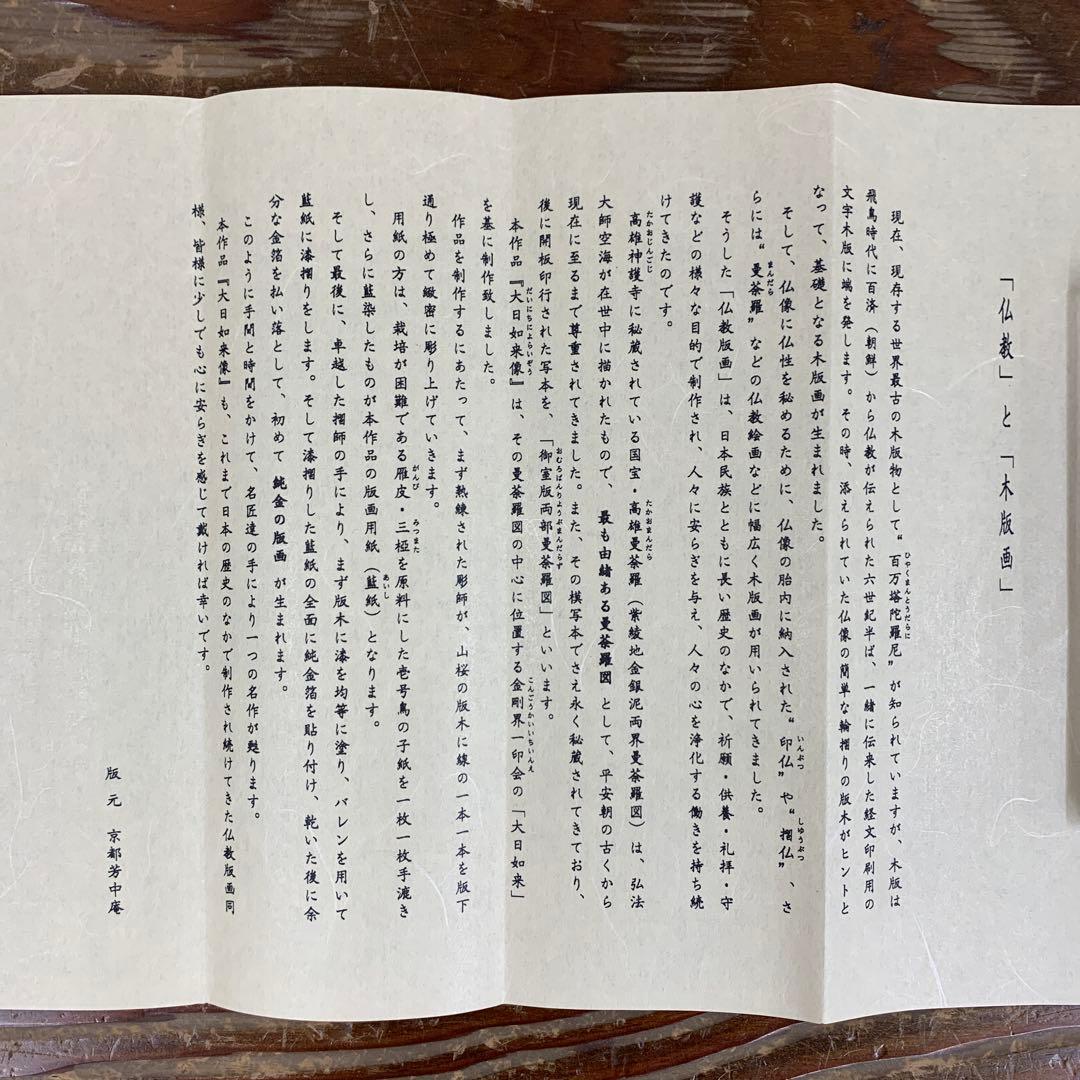 「仏教」と「木版画」
現在、現存する世界最古の木版物として“百万塔陀羅尼”が知られていますが、木版は
飛鳥時代に百済（朝鮮）から仏教が伝えられた六世紀半ば、一緒に伝来した経文印刷用の
文字木版に端を発します。その時、添えられていた仏像の簡単な輪摺りの版木がヒントと
なって、基礎となる木版画が生まれました。
そして、仏像に仏性を秘めるために、仏像の胎内に納入された“印仏”や“摺仏”、さ
らには“曼荼羅”などの仏教絵画などに幅広く木版画が用いられてきました。
そうした「仏教版画」は、日本民族とともに長い歴史のなかで、祈願・供養・礼拝・守
護などの様々な目的で制作され、人々に安らぎを与え、人々の心を浄化する働きを持ち続
けてきたのです。
高雄神護寺に秘蔵されている国宝・高雄曼荼羅（紫綾地金銀泥両界曼荼羅図）は、弘法
大師空海が在世中に描かれたもので、最も由緒ある曼荼羅図として、平安朝の古くから
現在に至るまで尊重されてきました。また、その模写本でさえ永く秘蔵されてきており、
後に開板印行された写本を、「御室版両部曼荼羅図」といいます。
本作品『大日如来像』は、その曼荼羅図の中心に位置する金剛界一印会の「大日如来」
を基に制作致しました。
作品を制作するにあたって、まず熟練された彫師が、山桜の版木に線の一本一本を版下
通り極めて緻密に彫り上げていきます。
用紙の方は、栽培が困難である雁皮・三椏を原料にした壱号鳥の子紙を一枚一枚手漉き
し、さらに藍染したものが本作品の版画用紙（藍紙）となります。
そして最後に、卓越した摺師の手により、まず版木に漆を均等に塗り、バレンを用いて
藍紙に漆摺りをします。そして漆摺りした藍紙の全面に純金箔を貼り付け、乾いた後に余
分な金箔を払い落として、初めて純金の版画が生まれます。
このように手間と時間をかけて、名匠達の手により一つの名作が甦ります。
本作品『大日如来像』も、これまで日本の歴史のなかで制作され続けてきた仏教版画同
様、皆様に少しでも心に安らぎを感じて戴ければ幸いです。
版元　京都芳中庵